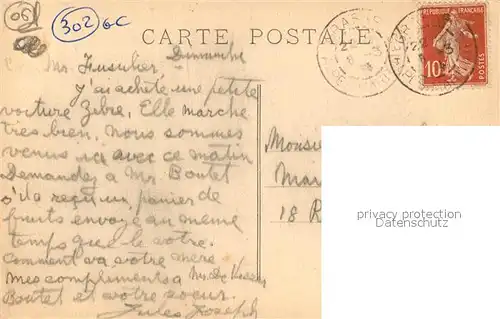 06
302 GC
CARTE POSTALE
REPUBLIQUE FRANÇAISE
10
POSTES
Dimanche
Mr. Fusulier
J'ai acheté une petite
voiture Zebre. Elle marche
très bien. Nous sommes
venus ici avec ce matin
Demandez a Mr. Boutet
s'il a reçu un panier de
fruits envoyé au meme
temps que le votre.
Comment va votre mere
Mes compliments a Mr. De
Boutet et votre soeur.
Jules Joseph
Monsieu
Mar
18 R
privacy protection
Datenschutz